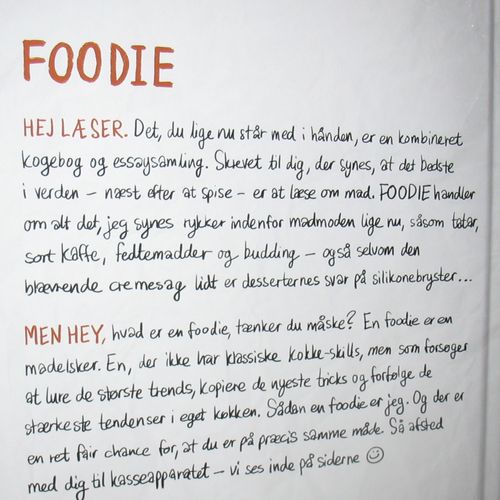 FOODIE
HEJ LÆSER. Det, du lige nu står med i hånden, er en kombineret
kogebog og essaysamling. Skrevet til dig, der synes, at det bedste
i verden – næst efter at spise – er at læse om mad. FOODIE handler
om alt det, jeg synes rykker indenfor madmoden lige nu, såsom tatar,
sort kaffe, fedtemadder og budding – også selvom den
bævrende cremesag lidt er desserternes svar på silikonebryster...
MEN HEY, hvad er en foodie, tænker du måske? En foodie er en
madelsker. En, der ikke har klassiske kokke-skills, men som forsøger
at lure de største trends, kopiere de nyeste tricks og forfølge de
stærkeste tendenser i eget køkken. Sådan en foodie er jeg. Og der er
en ret fair chance for, at du er på præcis samme måde. Så afsted
med dig til kasseapparatet – vi ses inde på siderne ☺